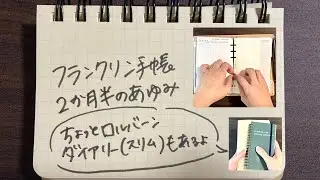 フランクリン手帳
2か月半のあゆみ
ちょっとロルバーン
ダイアリー(スリム)もあるよ